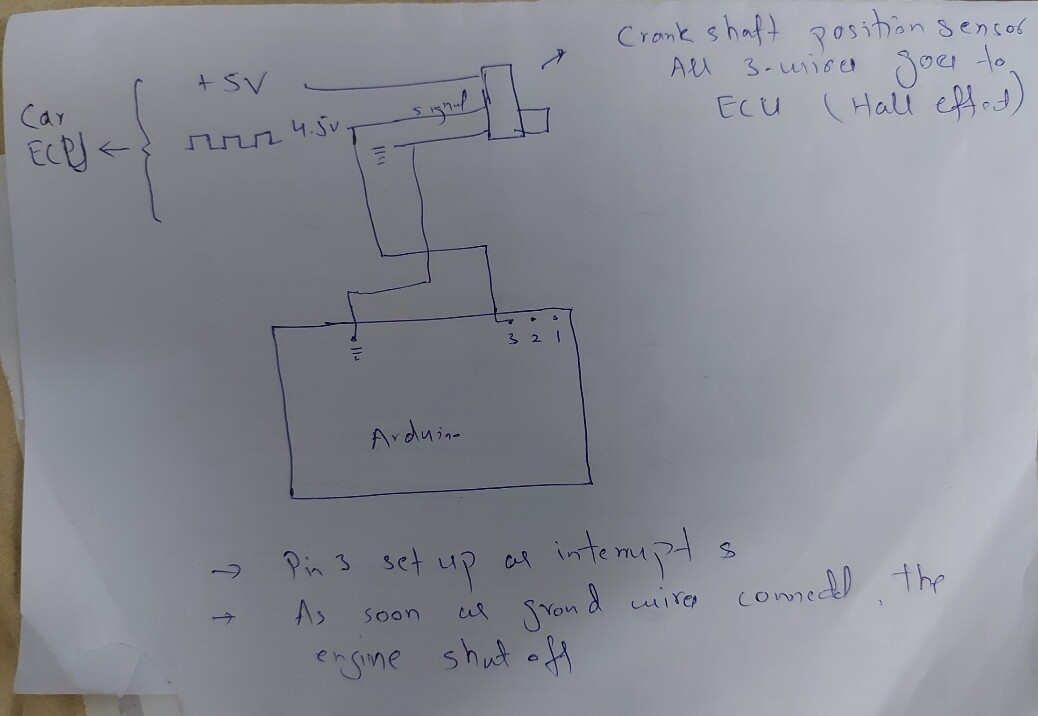 Crank shaft position sensor
All 3-wires goes to
ECU (Hall effect)
+5V
signal
Car
ECU
4.5v
3 2 1
Arduino
→ Pin 3 set up as interrupt s
→ As soon as grond wires connectd, the
engine shut off